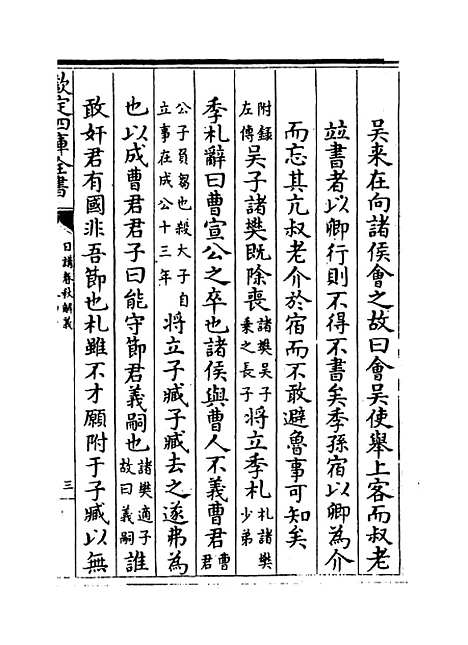 吳來在向諸侯會之故曰會吳使舉上客而叔老
竝書者以卿行則不得不書矣季孫宿以卿為介
而忘其亢叔老介於宿而不敢避魯事可知矣
附錄左傳吳子諸樊既除喪諸樊吳子乘之長子將立季札札諸樊少弟
季札辭曰曹宣公之卒也諸侯與曹人不義曹君曹君
公子負芻也殺大子自立事在成公十三年將立子臧子臧去之遂弗為
也以成曹君君子曰能守節君義嗣也諸樊適子故曰義嗣誰
敢奸君有國非吾節也札雖不才願附于子臧以無
欽定四庫全書
日講春秋解義
三